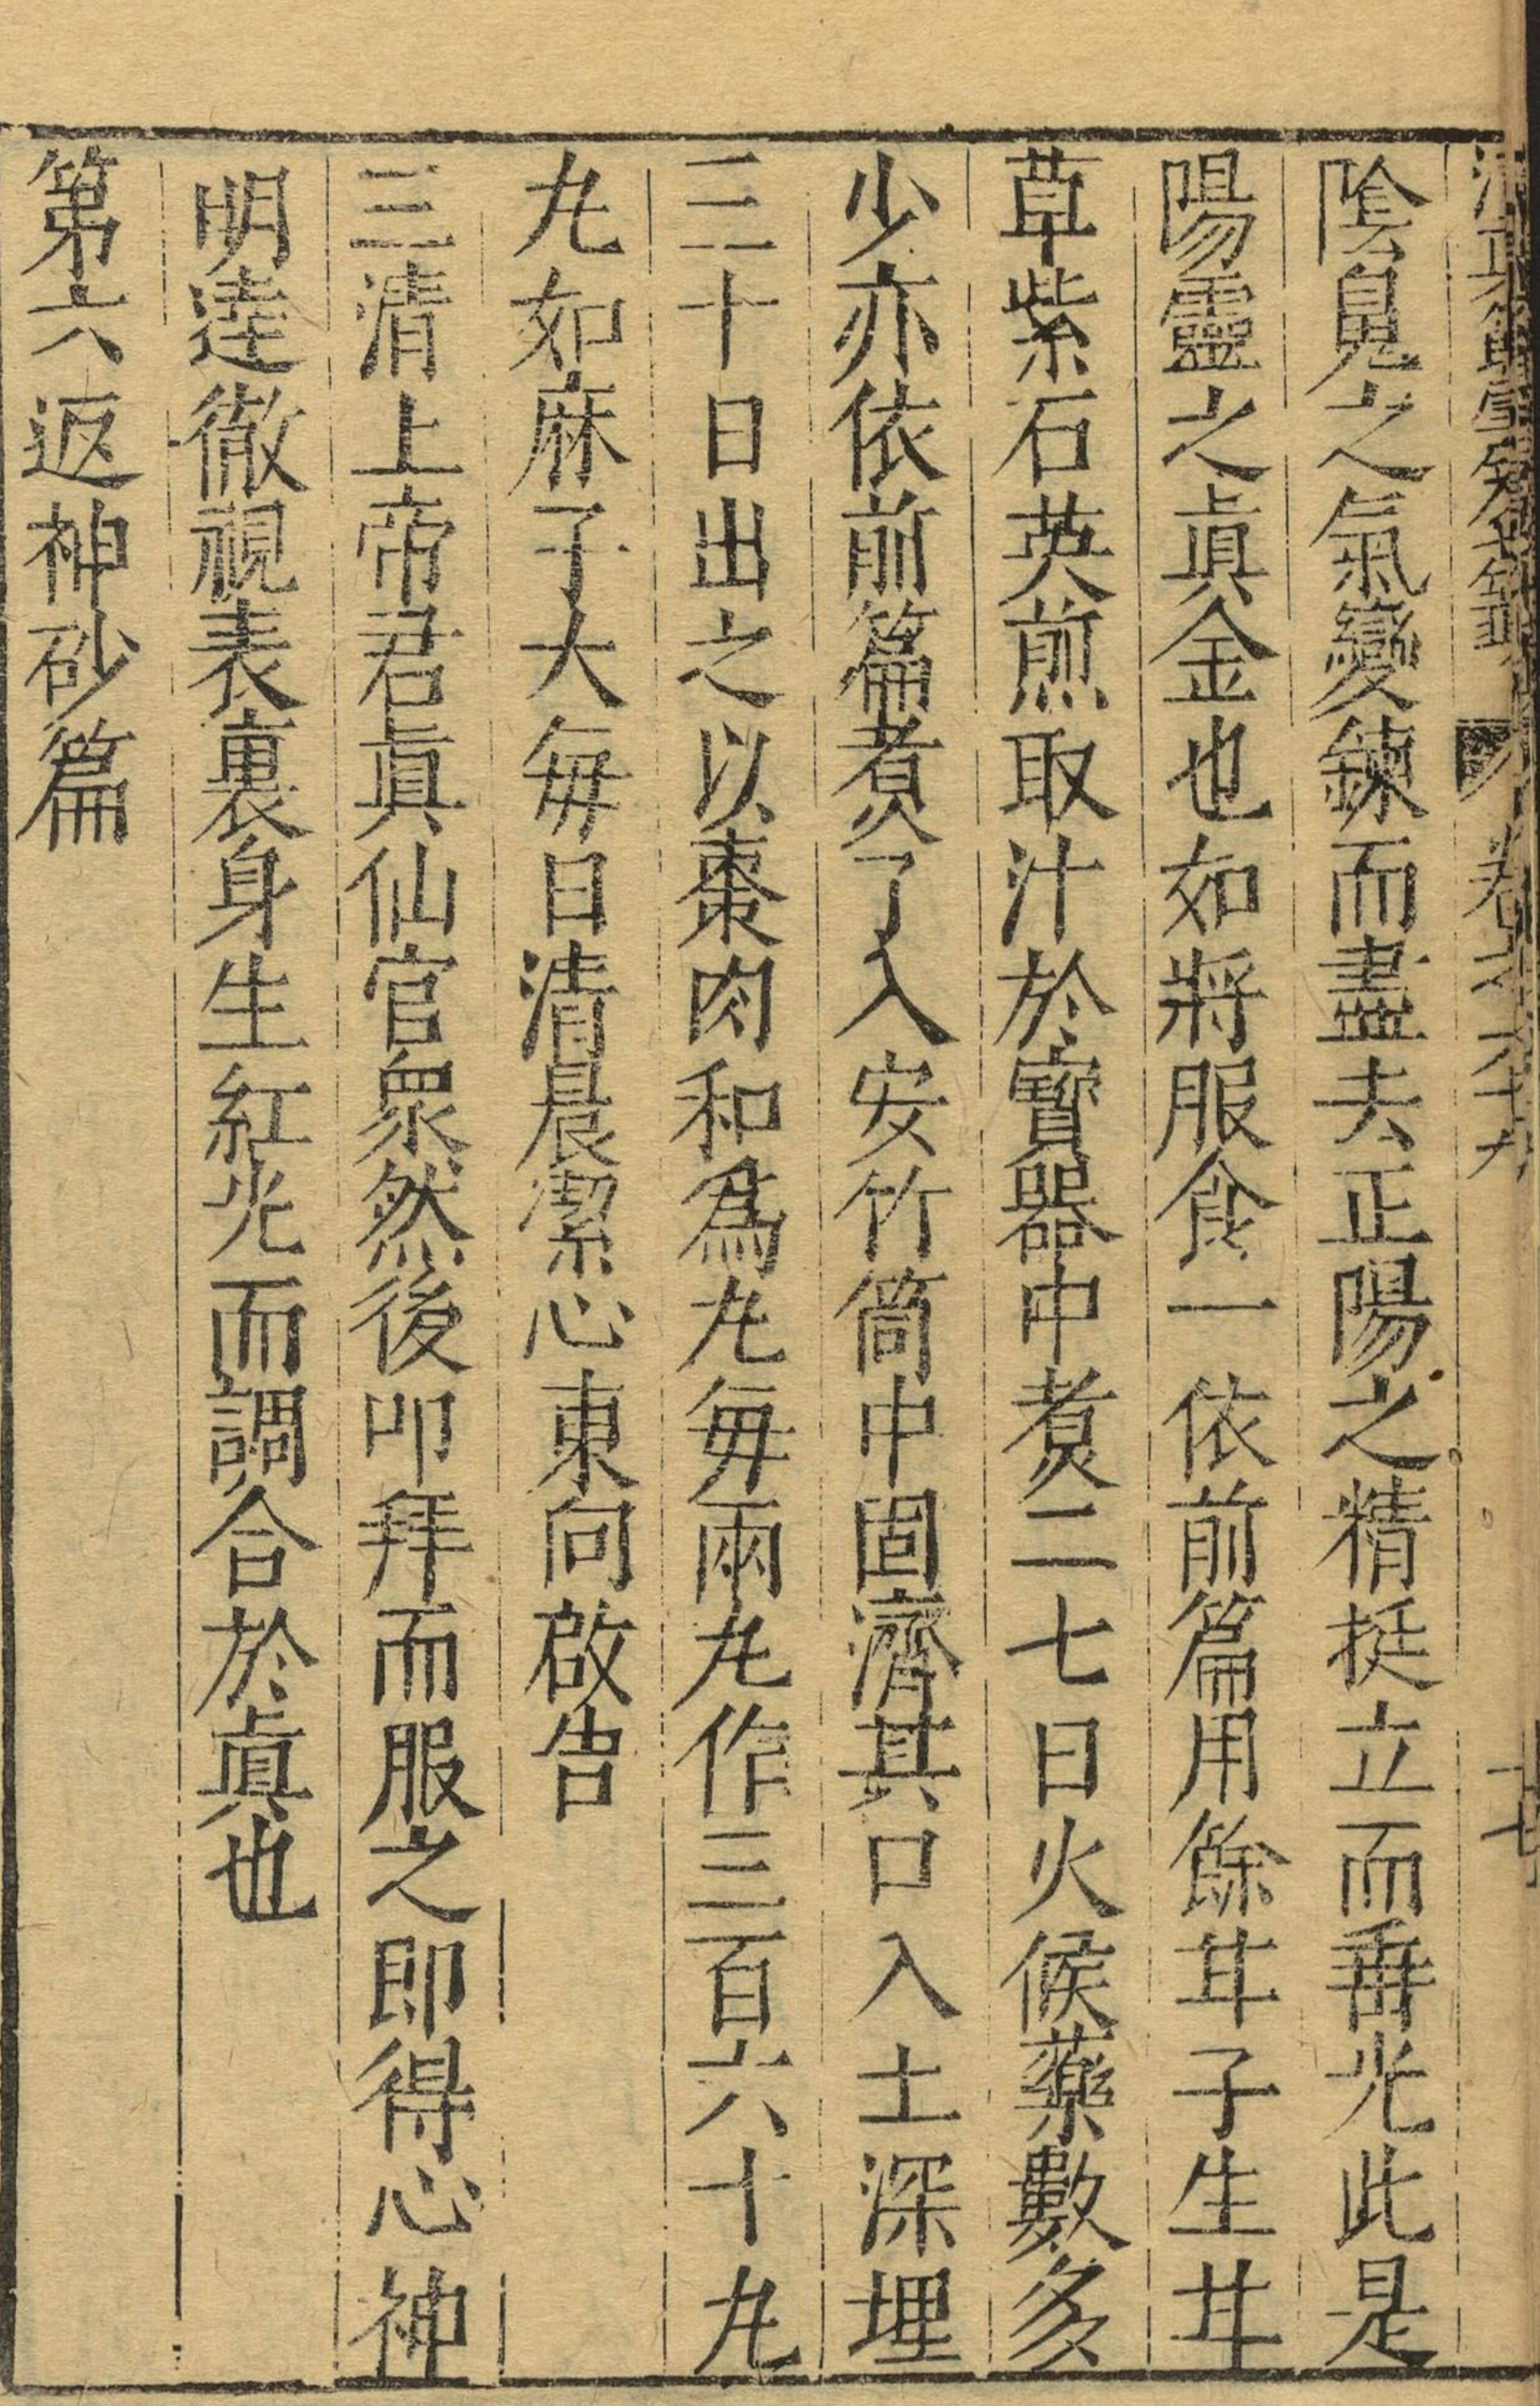 陰鬼之氣變鍊而盡去正陽之精挺立而垂光此是
陽靈之眞金也如將服食一依前篇用餘甘子生甘
草紫石英煎取汁於寶器中煑二七日火候藥數多
少亦依前篇煑了入安竹筒中固濟其口入土深埋
三十日出之以棗肉和爲丸每兩丸作三百六十丸
丸如麻子大每日清晨潔心東向啟告
三清上帝君眞仙官衆然後叩拜而服之即得心神
明逹徹視表裏身生紅光而調合於眞也
第六返神砂篇